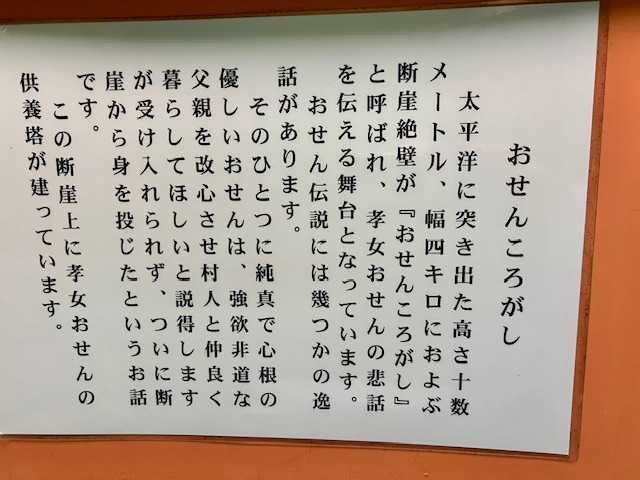 おせんころがし
太平洋に突き出た高さ十数
メートル、幅四キロにおよぶ
断崖絶壁が『おせんころがし』
と呼ばれ、孝女おせんの悲話
を伝える舞台となっています。
おせん伝説には幾つかの逸
話があります。
そのひとつに純真で心根の
優しいおせんは、強欲非道な
父親を改心させ村人と仲良く
暮らしてほしいと説得します
が受け入れられず、ついに断
崖から身を投じたというお話
です。
この断崖上に孝女おせんの
供養塔が建っています。